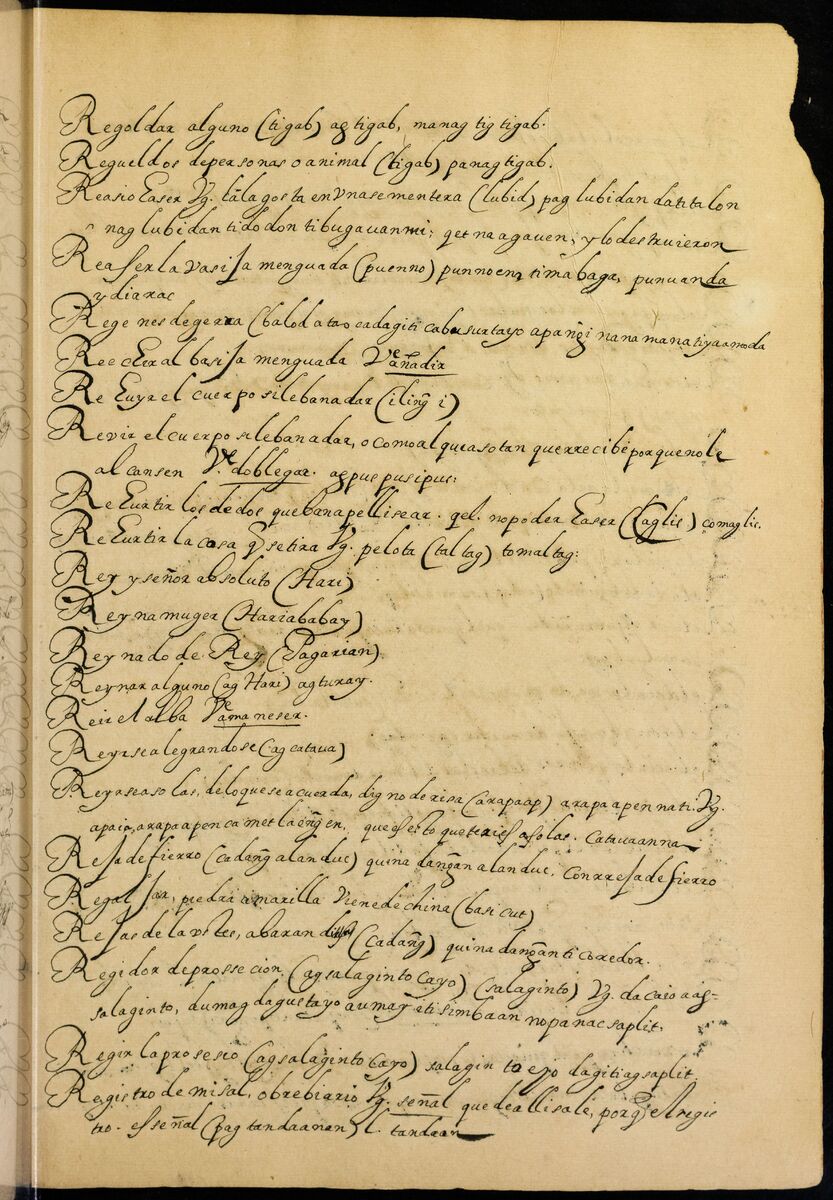 Regoldar alguno (tigab) ag tigab, manag tig tigab.
Regueldos de personas o animal (tigab) panagtigab.
Reasio Easer Vg. la lagosta en vna sementera (lubid) pag lubidan da ti talon
nag lubidan ti dodon ti bugauanmi; qet naagauen; y lo destruieron
Reaser la vasija menguada (puenno) punnoen, ti mabaga, punuanda
ydiarac
Regenes de gerra (balod a tao
Reecher al basija menguada Vᵉ añadir
Re Euyr el cuerpo si lebanadar (iling̃ i)
Revir el cuerpo si lebanadar, o como al que asotan que rrecibe porque no le
alcansen Vᵉ doblegar. agpuspusipus:
Re Eurtir los dedos que ban a pellisear. qel. no poder Easer (Caglis) comaglis.
Re Eurtir la cosa q̃ se tira Vg. pelota (taltag) tomaltag:
Rey y señor absoluto (Hari)
Reyna muger (Hariababay)
Reynado de Rey (Pagarian)
Reynar alguno (ag Hari) agturay.
Reir el alba Vᵉ amaneser.
Reyrse alegrandose (ag cataua)
Reyrse a solas, de lo que se acuerda, digno de risa (arapaap) arapaapen nati. Vg.
apaia, arapaapen ca met laeng̃en, que es esto que te ries a solas. catauaanna
Reja de fierro (cadang̃ a landuc) quinadang̃an a landuc. con rreja de fierro
Regalgar, piedra amarilla viene de china (basicut)
Rejas de la , abaran (cadang̃) quinadang̃an ti coredor.
Regidor de prossecion, (agsalaginto cayo) (salaginto) Vg. dacaio a ag-
salaginto, dumagdagus tayo aumay iti simbaan no panacsaplit.
Regir la prosesio (agsalaginto cayo) salaginto ejo dagiti agsaplit.
Registro de misal, o brebiario Vg. señal que de alli sale, porq̃ el regis
tro. es señal (pag tandaanan) l. tandaan